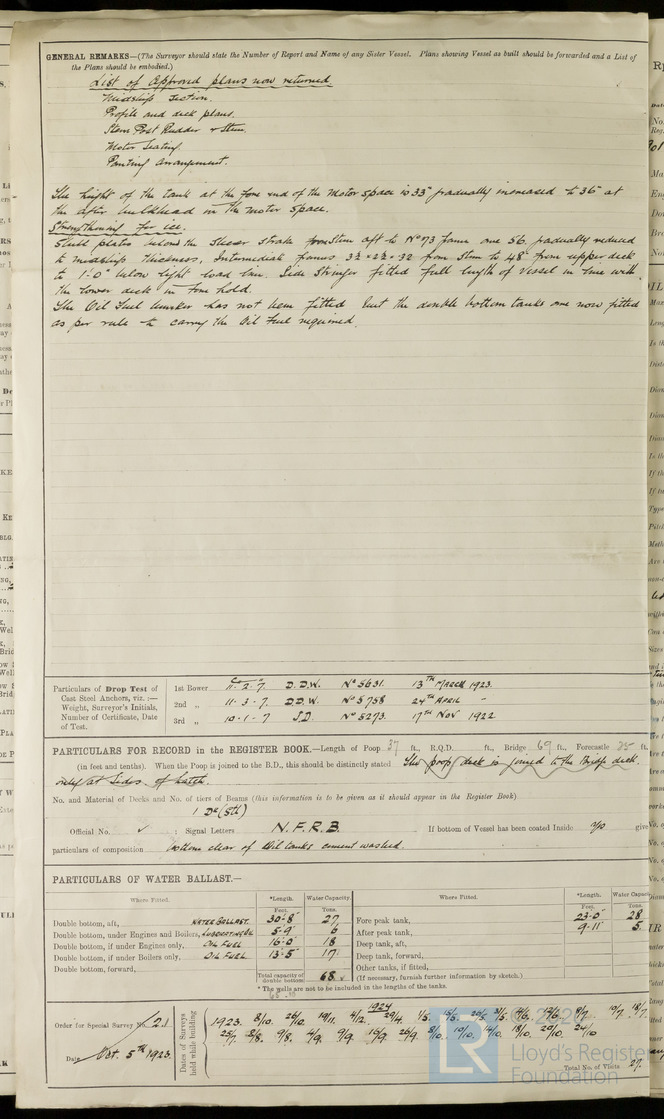 GENERAL REMARKS—(The Surveyor should state the Number of Report and Name of any Sister Vessel. Plans showing Vessel as built should be forwarded and a List of
the Plans should be embodied.)
List of approved plans now returned
Midship Section.
Profile and deck plans.
Stern Post Rudder & Stem.
Motor Seating
Panting Arrangement.
The height of the tank at the fore end of the motor space is 33" gradually increased to 36" at
the after bulkhead in the motor space.
Strengthening for ice.
Shell plates below the sheer strake from Stem aft to No 73 frame are .56 gradually reduced
to midship thickness, Intermediate frames 3½ × 2½ × .32 from stem to 48" from upper deck
to 1'-0" below light load line. Side Stringer fitted full length of Vessel in line with
the lower deck in fore hold.
The Oil Fuel has not been fitted but the double bottom tanks are now fitted
as per rule to carry the Oil Fuel required.
Particulars of Drop Test of
Cast Steel Anchors, viz.:—
Weight, Surveyor's Initials,
Number of Certificate, Date
of Test.
1st Bower 11-2-7. D.D.W. No 5631. 13TH March 1923.
2nd „ 11-3-7. D.D.W. No 5758 24TH April „
3rd „ 10-1-7 J.D. No 5273. 17TH Nov 1922
PARTICULARS FOR RECORD in the REGISTER BOOK.—Length of Poop 37 ft., R.Q.D. ft., Bridge 69 ft., Forecastle 25 ft.
(in feet and tenths). When the Poop is joined to the B.D., this should be distinctly stated The poop deck is joined to the Bridge deck
only at sides of hatch.
No. and Material of Decks and No. of tiers of Beams (this information is to be given as it should appear in the Register Book)
1 Dk (Stl)
Official No. ✓ ; Signal Letters N.F.R.B. If bottom of Vessel has been coated Inside yes give
particulars of composition bottom clear of Oil tanks cement washed.
PARTICULARS OF WATER BALLAST.—
Where Fitted. *Length. Water Capacity. Where Fitted. *Length. Water Capacity
Feet. Tons. Feet. Tons.
Double bottom, aft, WATER BALLAST. 30-8" 27 Fore peak tank, 23-0" 28
Double bottom, under Engines and Boilers, LUBRICTNG OIL 5-9" 6 After peak tank, 9-11" 5
Double bottom, if under Engines only, OIL FUEL 16-0" 18 Deep tank, aft,
Double bottom, if under Boilers only, OIL FUEL 13-5" 17 Deep tank, forward,
Double bottom, forward, Other tanks, if fitted,
Total capacity of double bottom 68 ✓ (If necessary, furnish further information by sketch.)
* The wells are not to be included in the lengths of the tanks.
Order for Special Survey No. 21
Date Oct. 5TH 1923.
Dates of Surveys held while building
1924
1923. 8/10. 26/10. 19/11. 4/12. 29/4. 1/5.
Total No. of Visits 27.
LR
© 2022
Lloyd's Register
Foundation